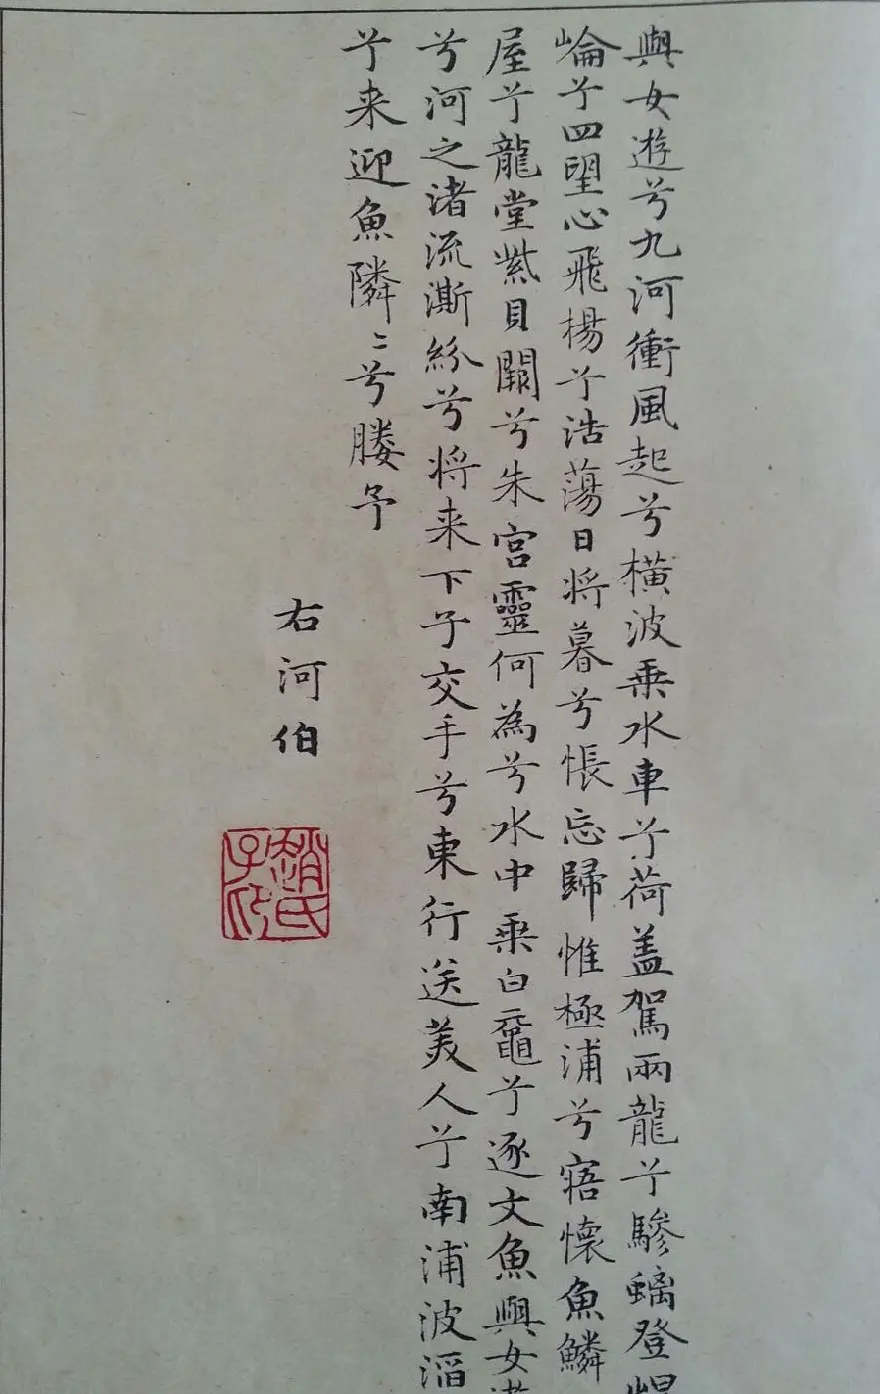 與女遊兮九河衝風起兮橫波乗水車兮荷盖駕兩龍兮驂螭登
崘兮四望心飛楊兮浩蕩日将暮兮悵忘歸惟極浦兮寤懷魚鱗
屋兮龍堂紫貝闕兮朱宮靈何為兮水中乗白黿兮逐文魚與女
兮河之渚流澌紛兮将来下子交手兮東行送美人兮南浦波滔
兮来迎魚隣〻兮媵予
右河伯
趙氏子印